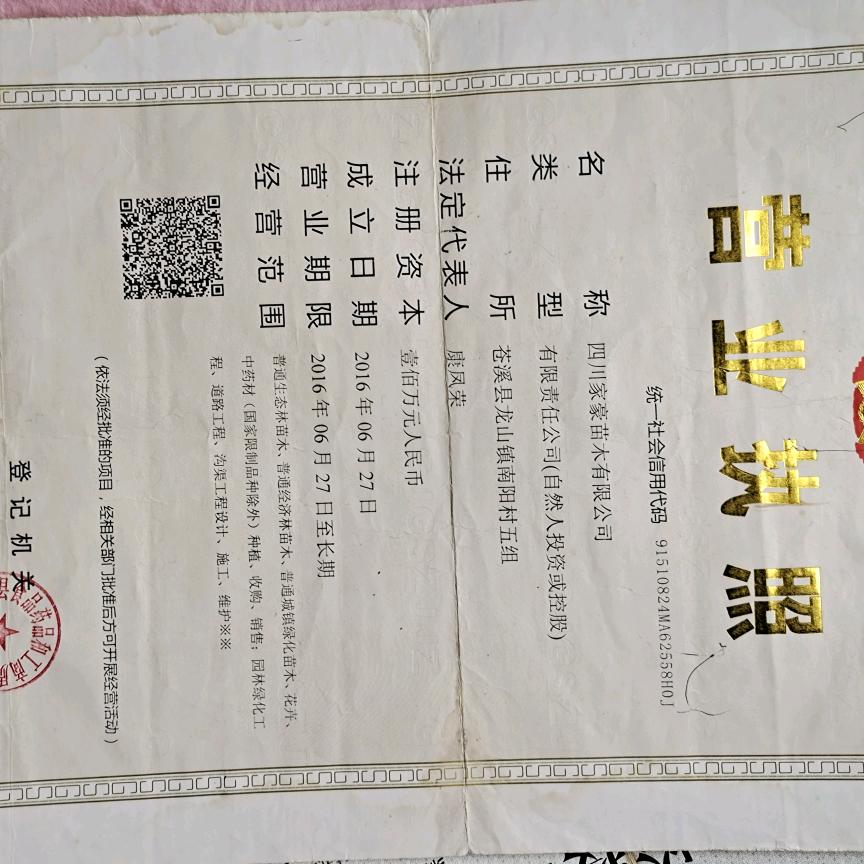 营业执照
统一社会信用代码 91510824MA62558H0J
名称 四川家豪苗木有限公司
类型 有限责任公司(自然人投资或控股)
住所 苍溪县龙山镇南阳村五组
法定代表人 康凤荣
注册资本 壹佰万元人民币
成立日期 2016年06月27日
营业期限 2016年06月27日至长期
经营范围 普通生态林苗木、普通经济林苗木、普通城镇绿化苗木、花卉、
中药材（国家限制品种除外）种植、收购、销售；园林绿化工
程、道路工程、沟渠工程设计、施工、维护※※
（依法须经批准的项目，经相关部门批准后方可开展经营活动）
登记机关